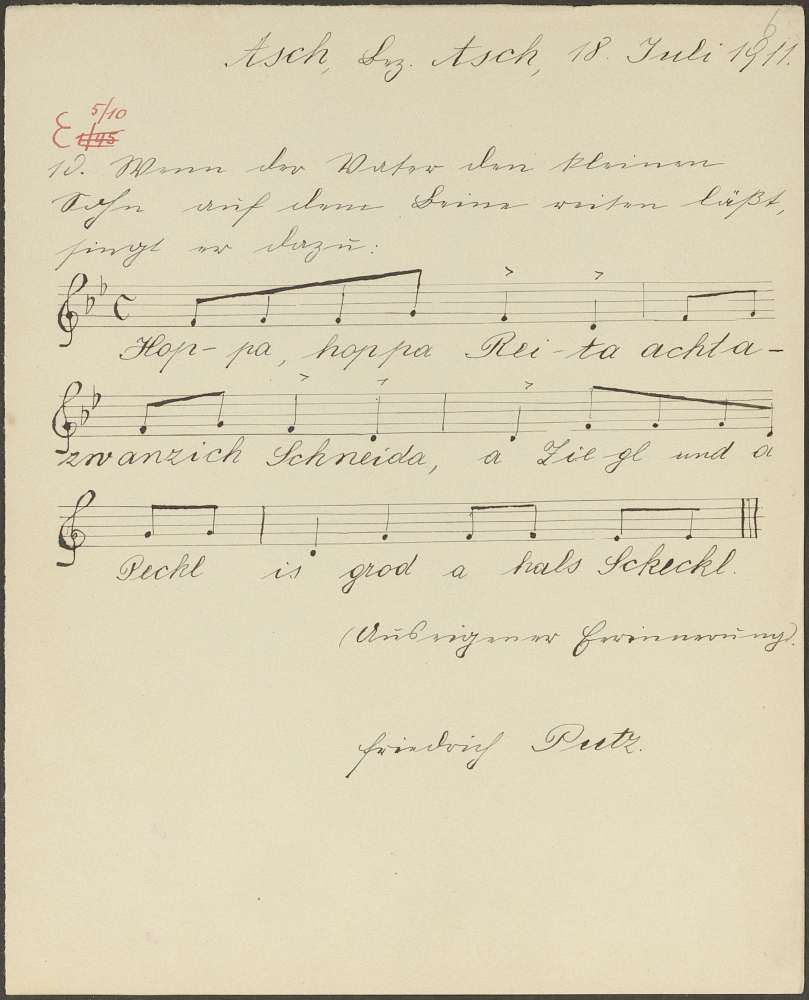 6
Asch, Bez. Asch, 18. Juli 1911.
E 5/10
1/45
10. Wenn der Vater den kleinen
Sohn auf dem Beine reiten läßt,
singt er dazu:
Hop- pa, hoppa Rei-ta achta-
zwanzich Schneida, a Ziegl und a
Peckl is grod a hals Scheckl.
(Aus eigener Erinnerung).
Friedrich Putz.